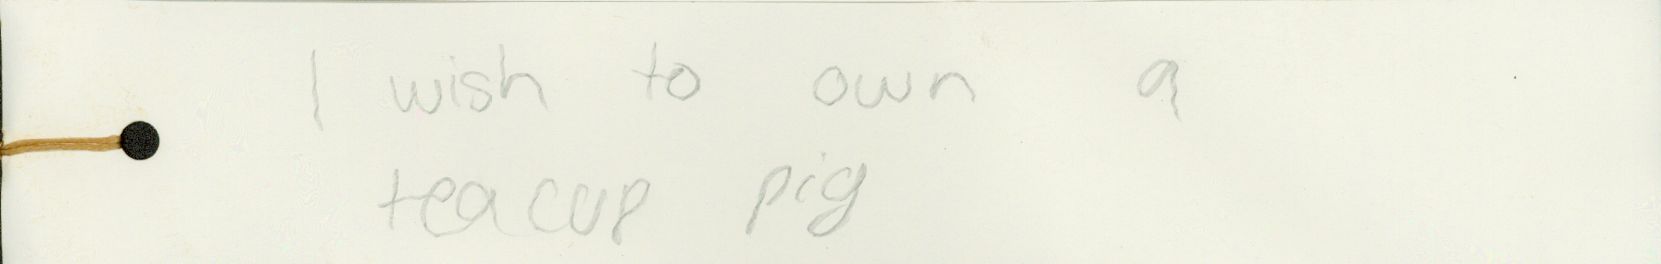 I wish to own a
teacup pig